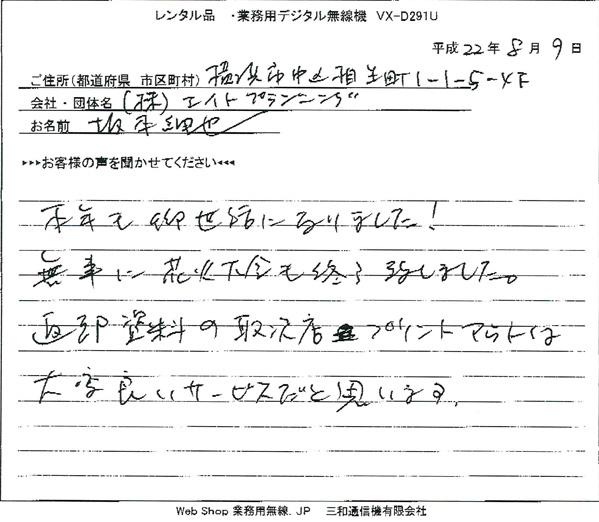 レンタル品 ・業務用デジタル無線機 VX-D291U
平成 22年 8月 9日
ご住所(都道府県 市区町村) 横浜市中区相生町1-1-5-4F
会社・団体名 (株)エイトプランニング
お名前 坂本
▸▸▸お客様の声を聞かせてください◂◂◂
本年も御世話になりました!
無事に花火大会も終了致しました。
返却資料の取次店 プリントアウトは
大変良いサービスだと思います。
Web Shop 業務用無線.JP 三和通信機有限会社